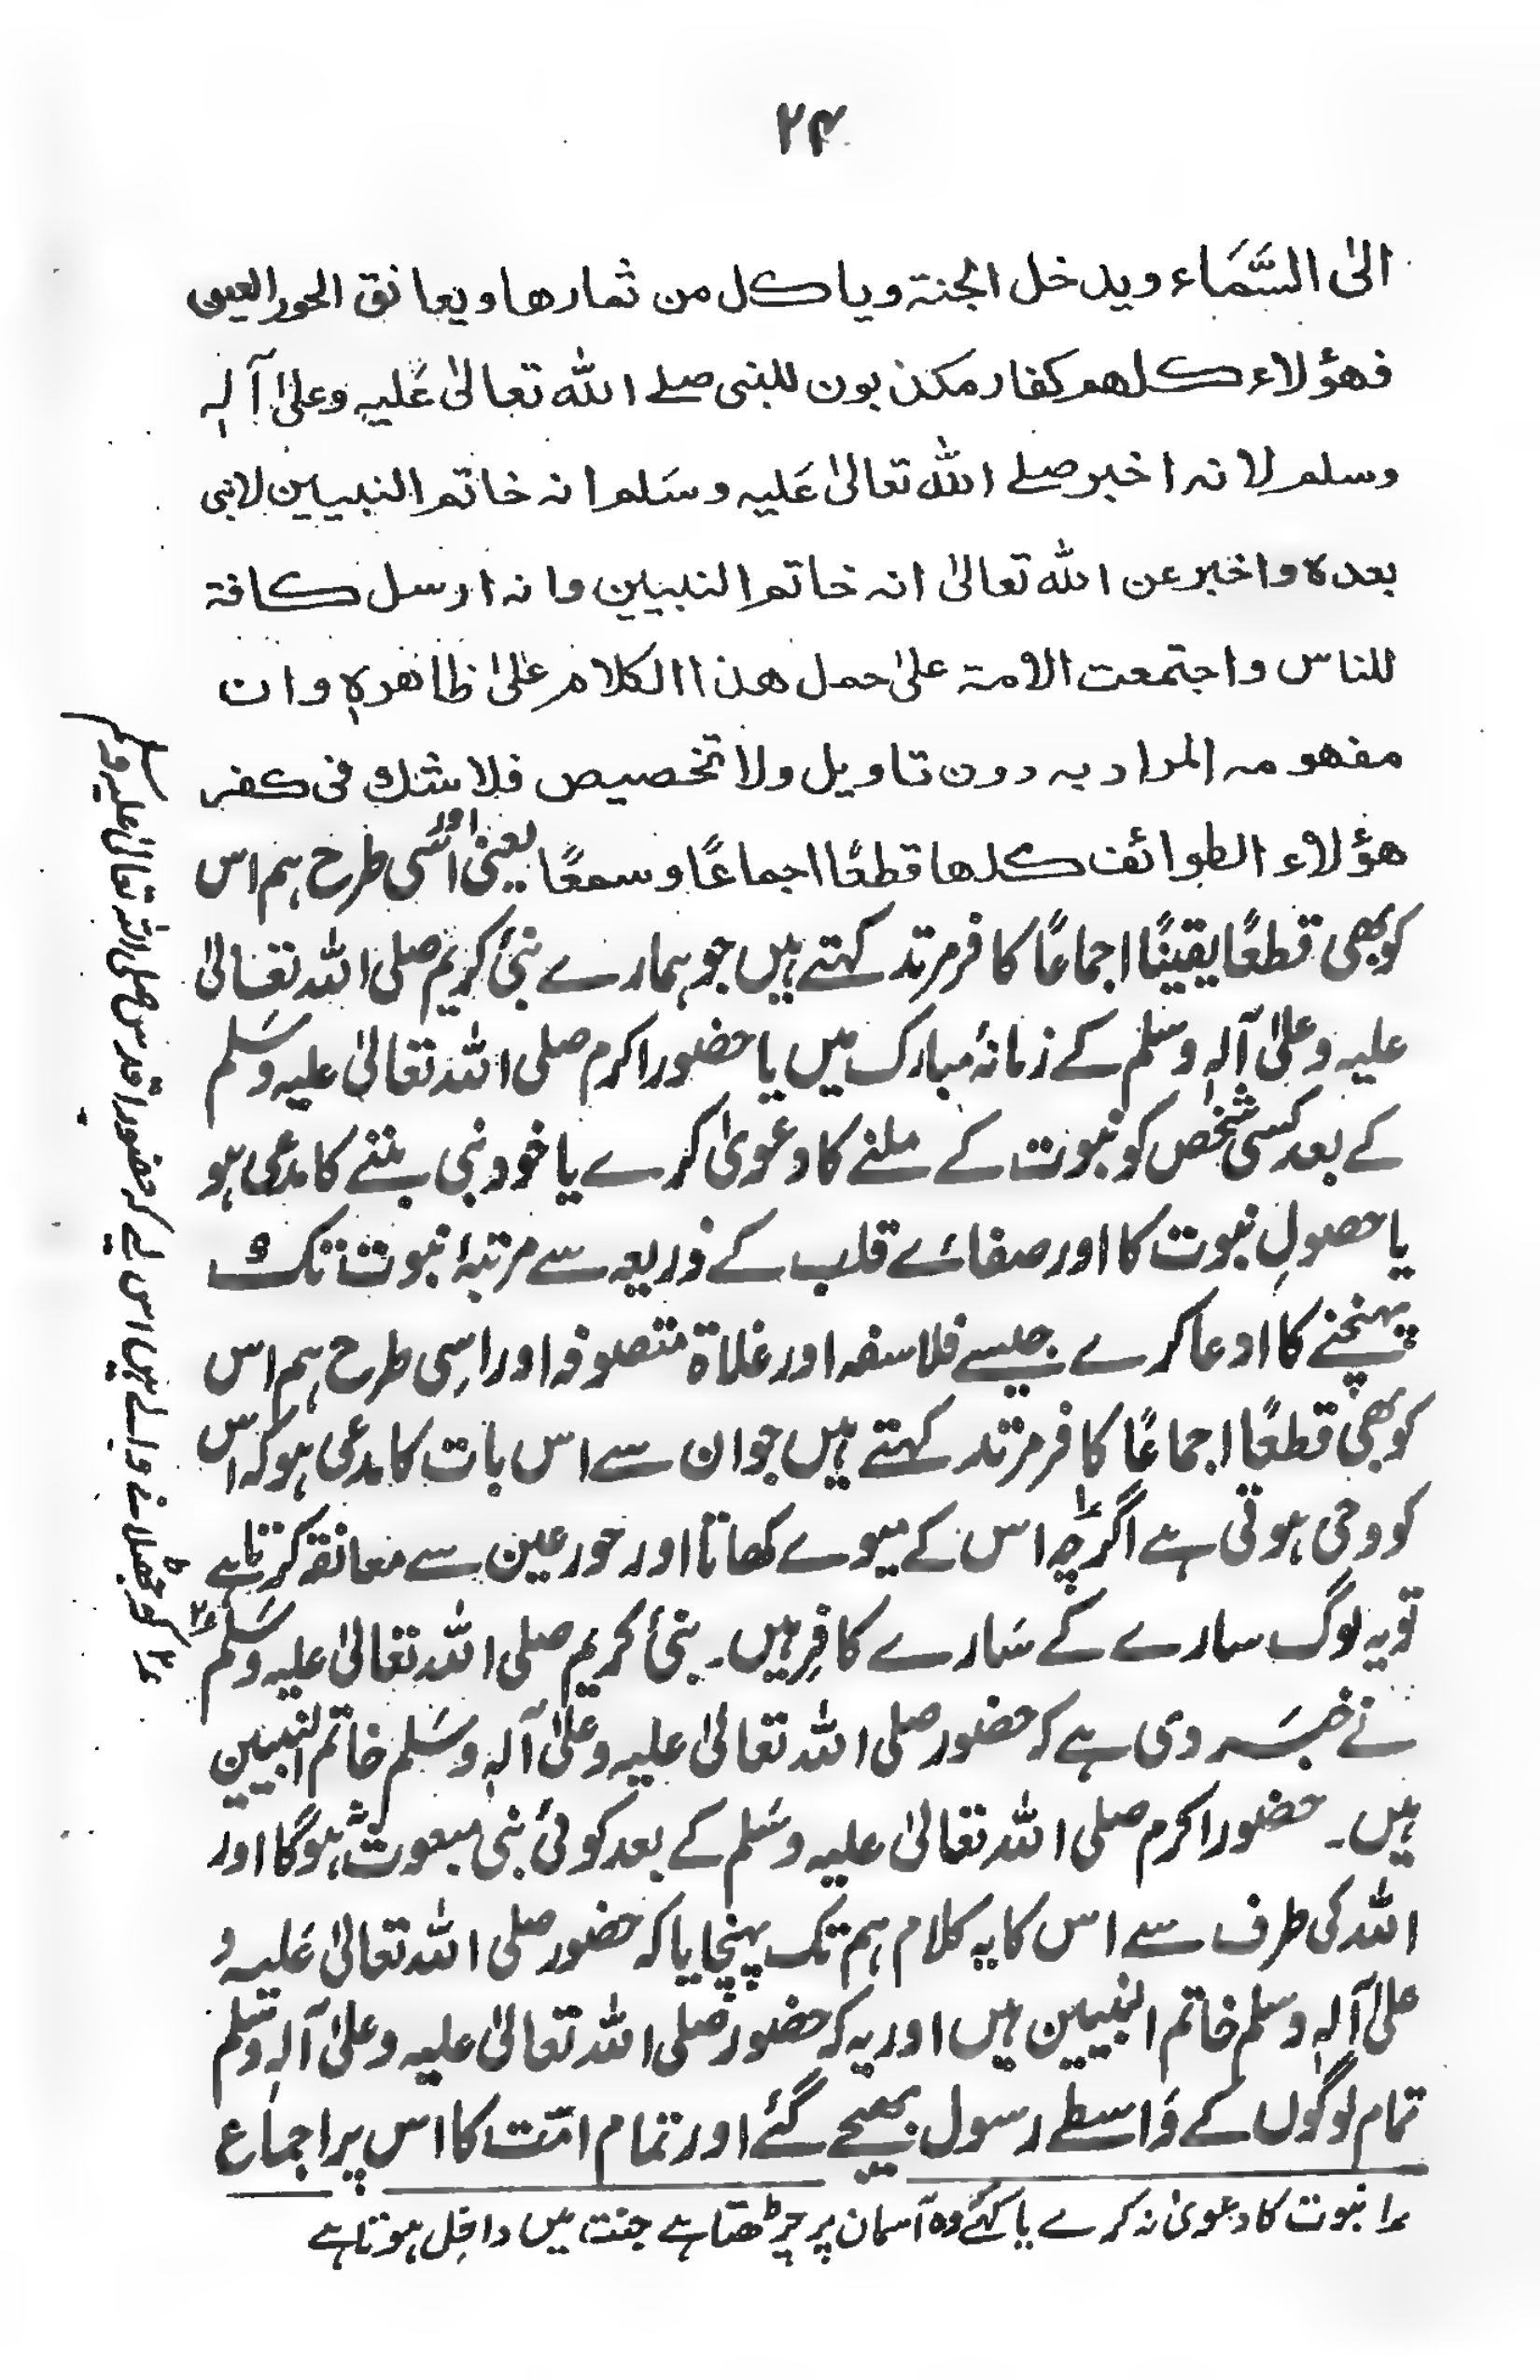 ۲۴
الیٰ السَّمَاء ویدخل الجنۃ ویاکل من ثمارھا ویعانق الحور العین
فھؤلاء کلھم کفار مکذبون للنبی صلے اللہ تعالیٰ عَلیہ وعلیٰ آلہٖ
وسلم لانہ اخبر صلے اللہ تعالیٰ عَلیہ وسَلم انہ خاتم النبیین لانبی
بعدہ واخبر عن اللہ تعالیٰ انہ خاتم النبیین وانہ ارسل کافۃ
للناس واجتمعت الامۃ علیٰ حمل ھذا الکلام علیٰ ظاھرہٖ وان
مفھومہ المراد بہ دون تاویل ولا تخصیص فلا شک فی کفر
ھؤلاء الطوائف کلھا قطعًا اجماعًا وسمعًا یعنی اور اسی طرح ہم اس
کو بھی قطعًا یقینًا اجماعًا کافر مرتد کہتے ہیں جو ہمارے نبیٔ کریم صلی اللہ تعالیٰ
علیہ وعلیٰ آلہٖ وسلم کے زمانۂ مبارک میں یا حضور اکرم صلی اللہ تعالیٰ علیہ وسَلم
کے بعد کسی شخص کو نبوت کے ملنے کا دعویٰ کرے یا خود نبی بننے کا مدعی ہو
یا حصولِ نبوت کا اور صفائے قلب کے ذریعہ سے مرتبۂ نبوت تک وہ
پہنچنے کا ادعا کرے جیسے فلاسفہ اور غلاۃ متصوفہ اور اسِی طرح ہم اس
کو بھی قطعًا اجماعًا کافر مرتد کہتے ہیں جو ان سے اس بات کا مدعی ہو کہ اس
کو وحی ہوتی ہے اگرچہ ۱؎ اس کے میوے کھاتا اور حور عین سے معانقہ کرتا ہے
تو یہ لوگ سارے کے سَارے کافِر ہیں۔ نبیٔ کریم صلی اللہ تعالیٰ علیہ وسَلم ۲؎
نے خبَر دی ہے کہ حضور صلی اللہ تعالیٰ علیہ وعلیٰ آلہٖ وسَلم خاتم النبیین
ہیں۔ حضور اکرم صلی اللہ تعالیٰ علیہ وسَلم کے بعد کوئی نبی مبعوث نہ ہوگا اور
اللہ کی طرف سے اس کا یہ کلام ہم تک پہنچایا کہ حضور صلی اللہ تعالیٰ عَلیہ و
علیٰ آلہٖ وسلم خاتم النبیین ہیں اور یہ کہ حضور صلی اللہ تعالیٰ علیہ وعلیٰ آلہٖ وسَلم
تمام لوگوں کے وَاسطے رسول بھیجے گئے اور تمام امّت کا اس پر اجماع
۱؎ نبوت کا دعویٰ نہ کرے یا کہے وہ آسمان پر چڑھتا ہے جنت میں داخِل ہوتا ہے
۲؎ کو جھٹلانے والے ہیں اس لیے کہ حضور اقدس صلی اللہ تعالیٰ علیہ وسلم